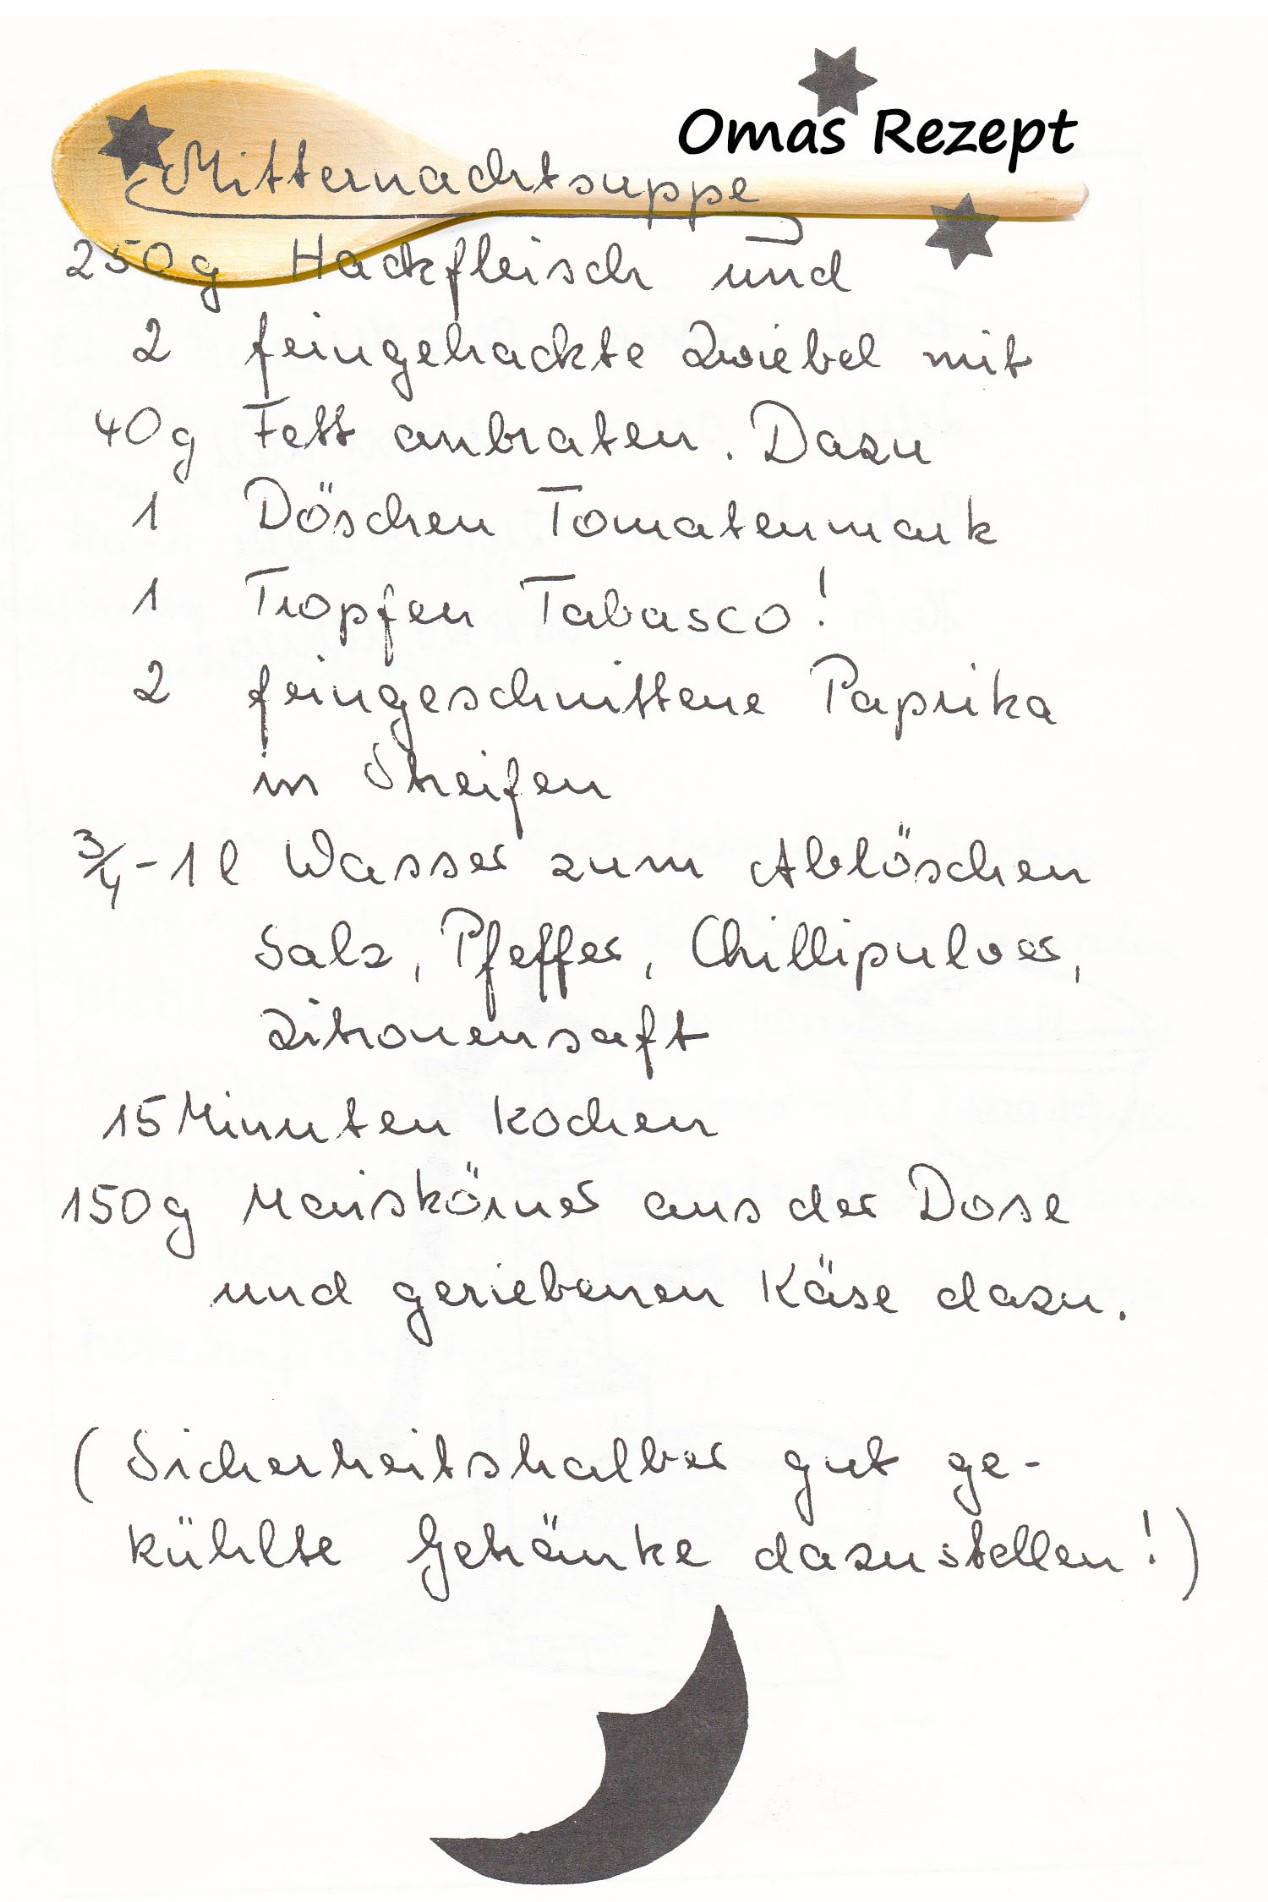 Omas Rezept
Mitternachtsuppe
250g Hackfleisch und
2 feingehackte Zwiebel mit
40g Fett anbraten. Dazu
1 Döschen Tomatenmark
1 Tropfen Tabasco!
2 feingeschnittene Paprika
in Streifen
3/4-1l Wasser zum Ablöschen
Salz, Pfeffer, Chillipulver,
Zitronensaft
15 Minuten kochen
150g Maiskörner aus der Dose
und geriebenen Käse dazu.
(Sicherheitshalber gut ge-
kühlte Getränke dazustellen!)